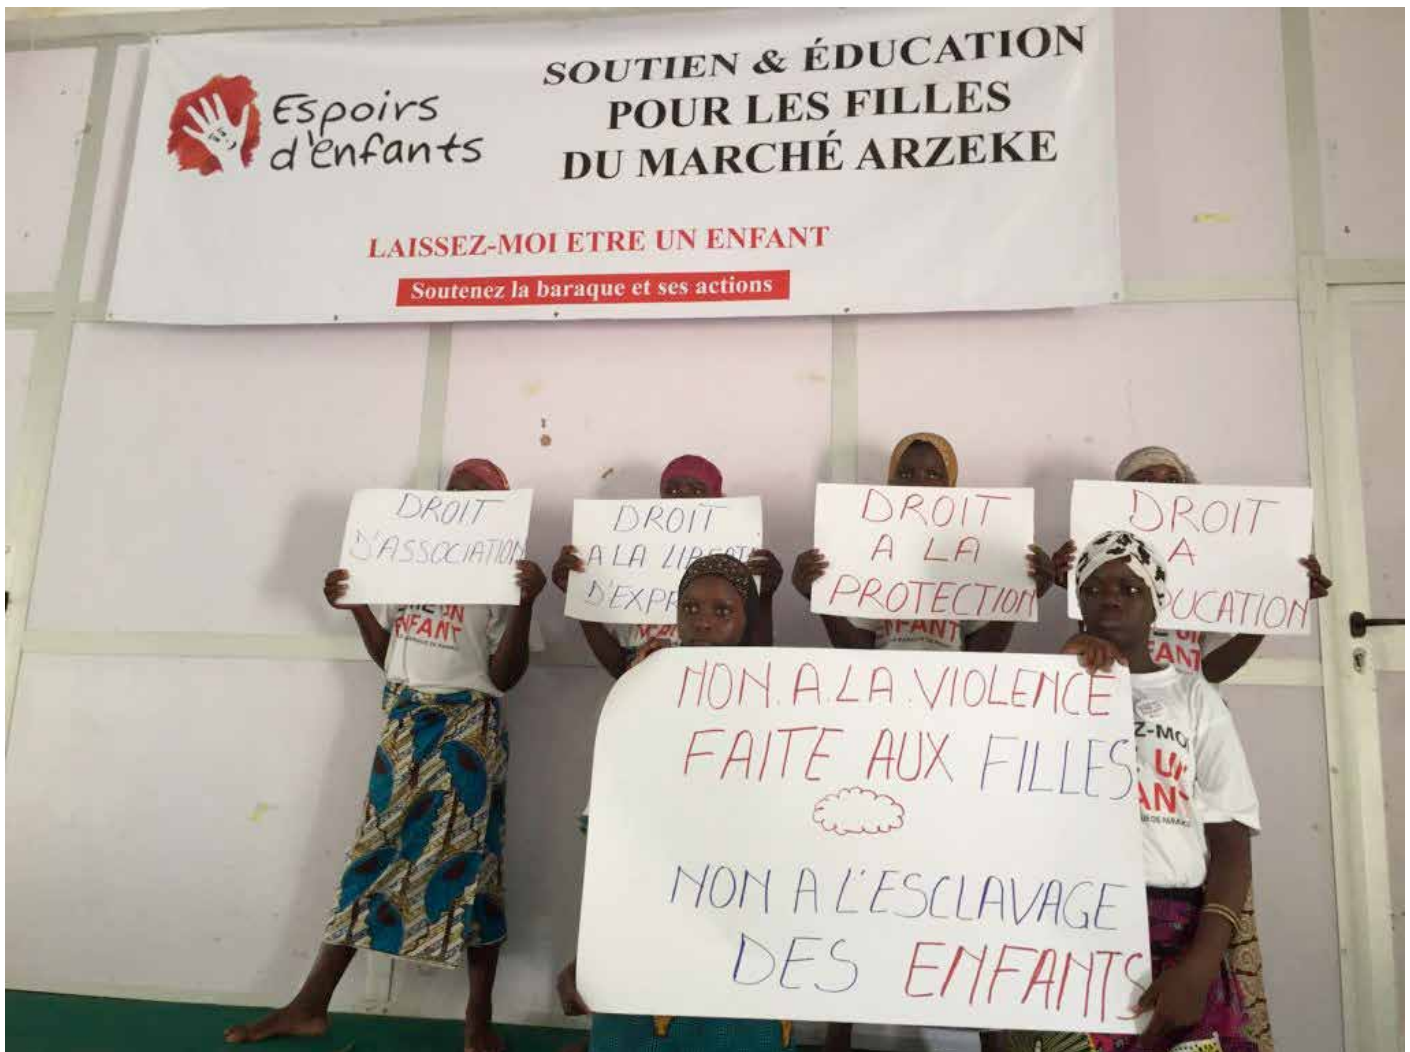 Espoirs
d'enfants
SOUTIEN & ÉDUCATION
POUR LES FILLES
DU MARCHÉ ARZEKE
LAISSEZ-MOI ETRE UN ENFANT
Soutenez la baraque et ses actions
DROIT
D'ASSOCIATION
DROIT
A LA
D'EXPR
DROIT
A LA
PROTECTION
DROIT
A
DUCATION
UN
ENFANT
ENFANT
ENFANT
NON.A.LA.VIOLENCE
FAITE AUX FILLES
NON A L'ESCLAVAGE
DES ENFANTS